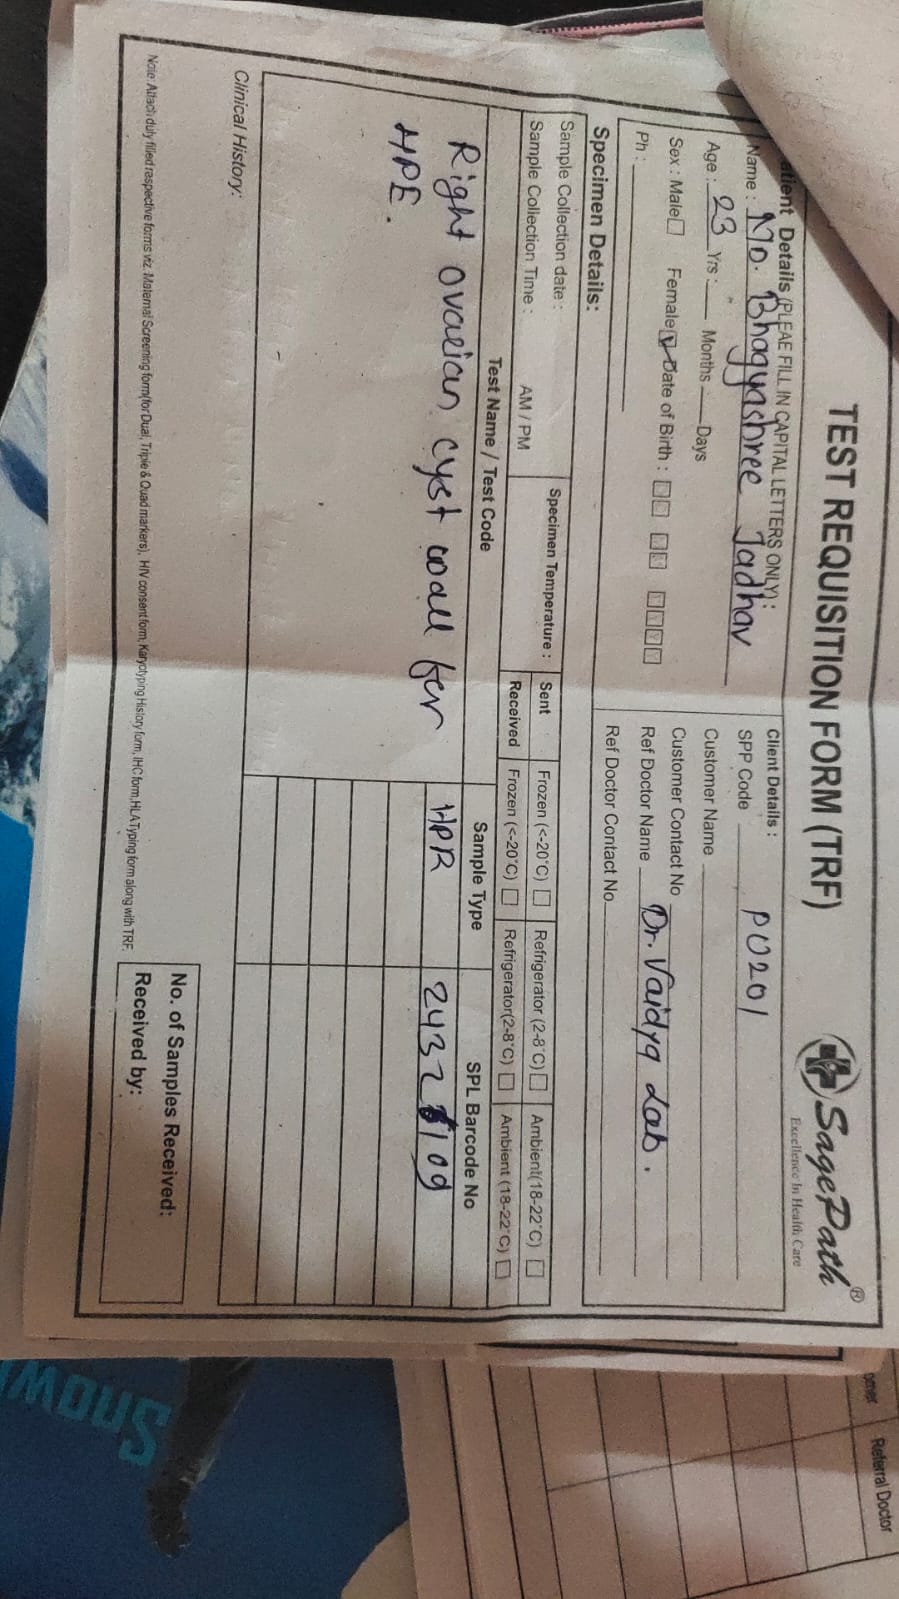 TEST REQUISITION FORM (TRF)
SagePath®
Excellence In Health Care
atient Details (PLEAE FILL IN CAPITAL LETTERS ONLY) :
Name : Bhagyashree Jadhav
Age : 23 Yrs : Months Days
Sex : Male Female Date of Birth :
Ph :
Client Details :
SPP Code PU201
Customer Name
Customer Contact No
Ref Doctor Name Dr. Vaidya Lab.
Ref Doctor Contact No
Specimen Details:
Sample Collection date :
Sample Collection Time : AM / PM
Specimen Temperature :
Sent Frozen (<-20°C) Refrigerator (2-8°C) Ambient(18-22°C)
Received Frozen (<-20°C) Refrigerator(2-8°C) Ambient (18-22°C)
Test Name / Test Code Sample Type SPL Barcode No
Right ovarian cyst wall for HPR
HPE.
Clinical History:
Note: Attach duly filled respective forms viz. Maternal Screening form(for Dual, Triple & Quad markers), HIV consent form, Karyotyping History form, IHC form, HLA Typing form along with TRF.
No. of Samples Received:
Received by:
omer Referral Doctor